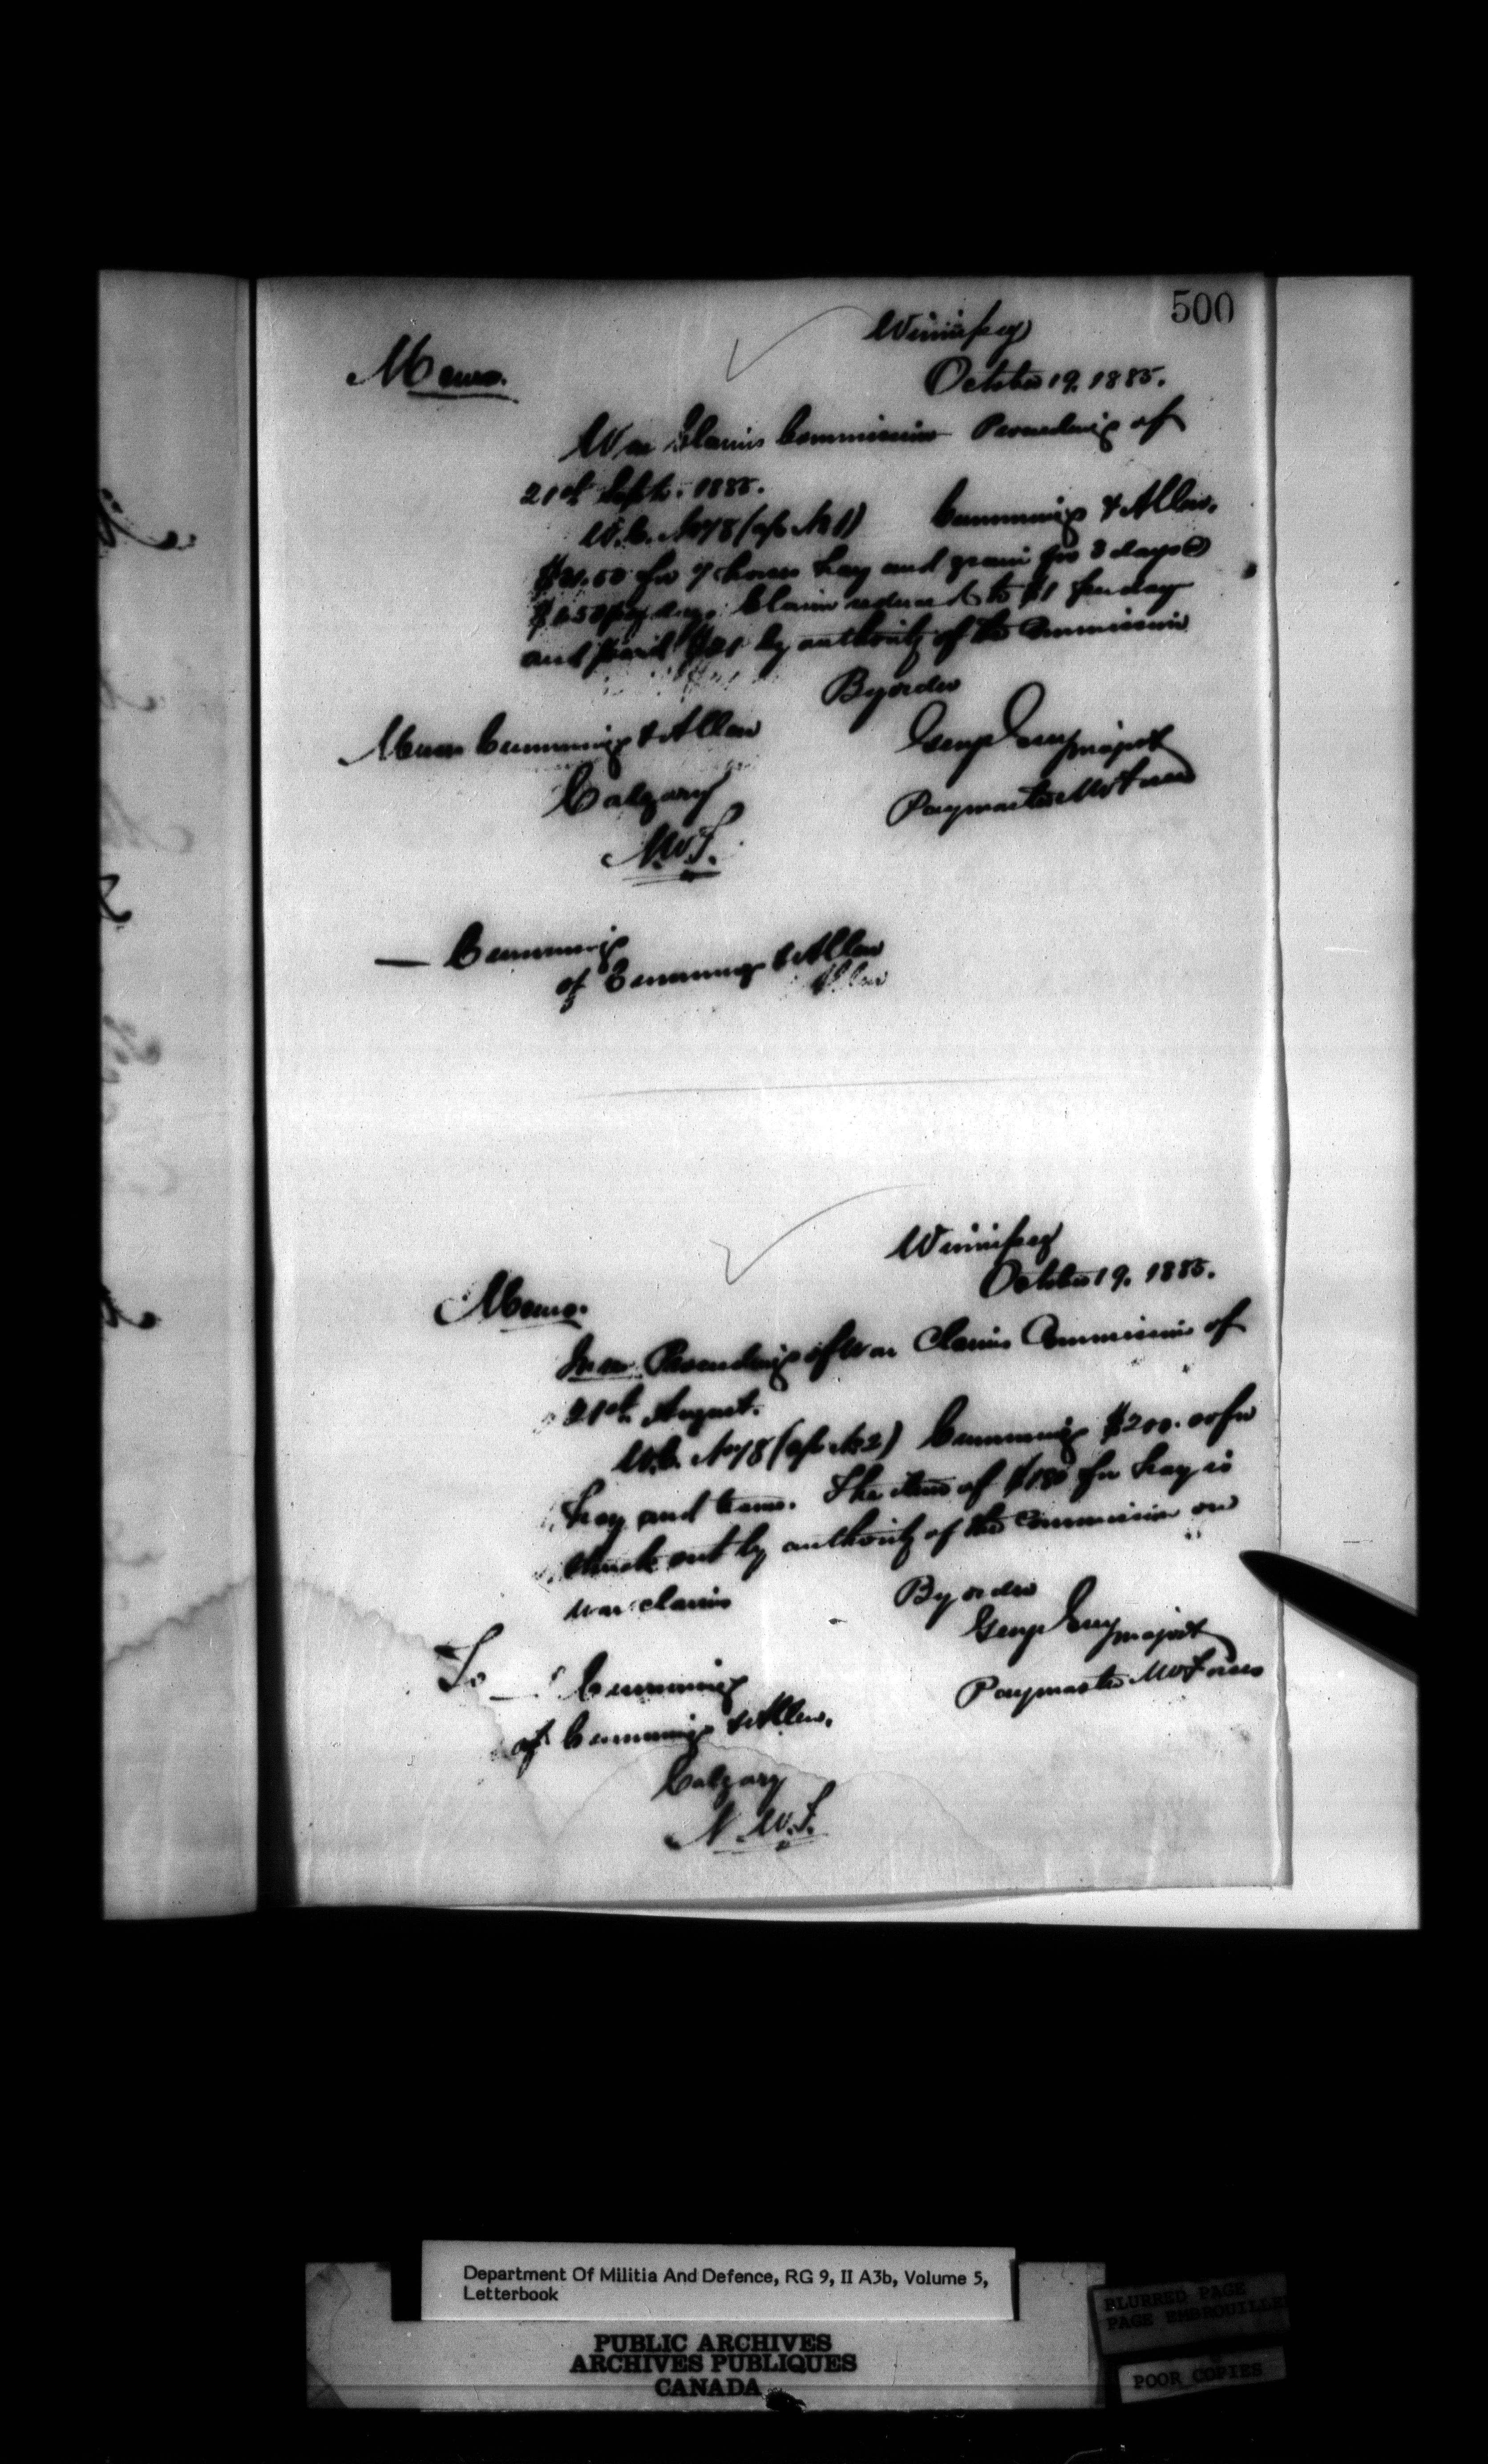 500
Winnipeg
Memo.
October 19. 1885.
War Claims Commission Proceedings of
21st Sept. 1885.
W.C. No 78 (a/c No 1) Cummings & Allen.
for 7 horses hay and grain for 3 days @
per day. Claim reduced to $1 per day
and paid $21 by authority of the Commission
By order
Messrs Cummings & Allen
Major
Calgary
Paymaster Forces
N.W.T.
— Cummings
of Cummings & Allen
Allen
Winnipeg
October 19. 1885.
Memo.
Proceedings of War Claims Commission of
21st August.
W.C. No 78 (a/c No 2) Cummings $200.00 for
hay and teams. The item of $180 for hay is
struck out by authority of the Commission on
War claims
By order
Major
To — Cummings
Paymaster Forces
of Cummings & Allen.
Calgary
N.W.T.
Department Of Militia And Defence, RG 9, II A3b, Volume 5,
Letterbook
PUBLIC ARCHIVES
ARCHIVES PUBLIQUES
CANADA
BLURRED PAGE
PAGE EMBROUILLE
POOR COPIES